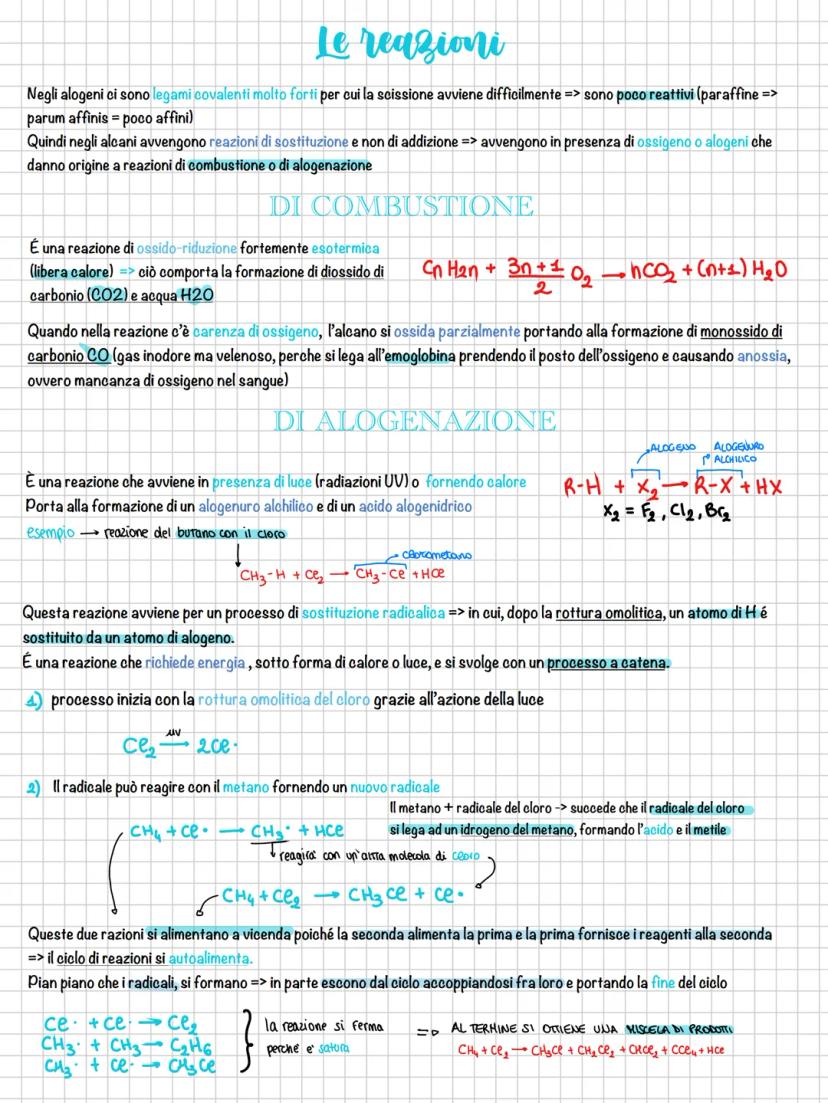 Le reazioni
Negli alogeni ci sono legami covalenti molto forti per cui la scissione avviene difficilmente => sono poco reattivi (paraffine =>
parum affinis = poco affini)
Quindi negli alcani avvengono reazioni di sostituzione e non di addizione => avvengono in presenza di ossigeno o alogeni che
danno origine a reazioni di combustione o di alogenazione
DI COMBUSTIONE
É una reazione di ossido-riduzione fortemente esotermica
(libera calore) => ciò comporta la formazione di diossido di
carbonio (CO2) e acqua H2O
Cn H2n + 3n+1/2 O₂ → nCO₂ + (n+1) H₂O
Quando nella reazione c'è carenza di ossigeno, l'alcano si ossida parzialmente portando alla formazione di monossido di
carbonio CO (gas inodore ma velenoso, perche si lega all'emoglobina prendendo il posto dell'ossigeno e causando anossia,
ovvero mancanza di ossigeno nel sangue)
DI ALOGENAZIONE
È una reazione che avviene in presenza di luce (radiazioni UV) o fornendo calore
Porta alla formazione di un alogenuro alchilico e di un acido alogenidrico
ALOGENO
ALOGENURO
ALCHILICO
R-H + X₂ → R-X + HX
X₂ = F₂, Cl₂, Br₂
esempio → reazione del butano con il cloro
clorometano
CH₃-H + Cl₂ → CH₃-Cl + HCl
Questa reazione avviene per un processo di sostituzione radicalica => in cui, dopo la rottura omolitica, un atomo di H é
sostituito da un atomo di alogeno.
É una reazione che richiede energia, sotto forma di calore o luce, e si svolge con un processo a catena.
1) processo inizia con la rottura omolitica del cloro grazie all'azione della luce
uv
Cl₂ → 2Cl·
2) Il radicale può reagire con il metano fornendo un nuovo radicale
Il metano + radicale del cloro -> succede che il radicale del cloro
si lega ad un idrogeno del metano, formando l'acido e il metile
CH₄ + Cl· → CH₃· + HCl
reagirà con un'altra molecola di cloro
CH₄ + Cl₂ → CH₃Cl + Cl·
Queste due razioni si alimentano a vicenda poiché la seconda alimenta la prima e la prima fornisce i reagenti alla seconda
=> il ciclo di reazioni si autoalimenta.
Pian piano che i radicali, si formano => in parte escono dal ciclo accoppiandosi fra loro e portando la fine del ciclo
Cl· + Cl· → Cl₂
CH₃· + CH₃ → C₂H₆
CH₃· + Cl· → CH₃Cl
la reazione si ferma
perché e' satura
=> AL TERMINE SI OTTIENE UNA MISCELA DI PRODOTTI
CH₄ + Cl₂ → CH₃Cl + CH₂Cl₂ + CHCl₂ + CCl₄ + HCl